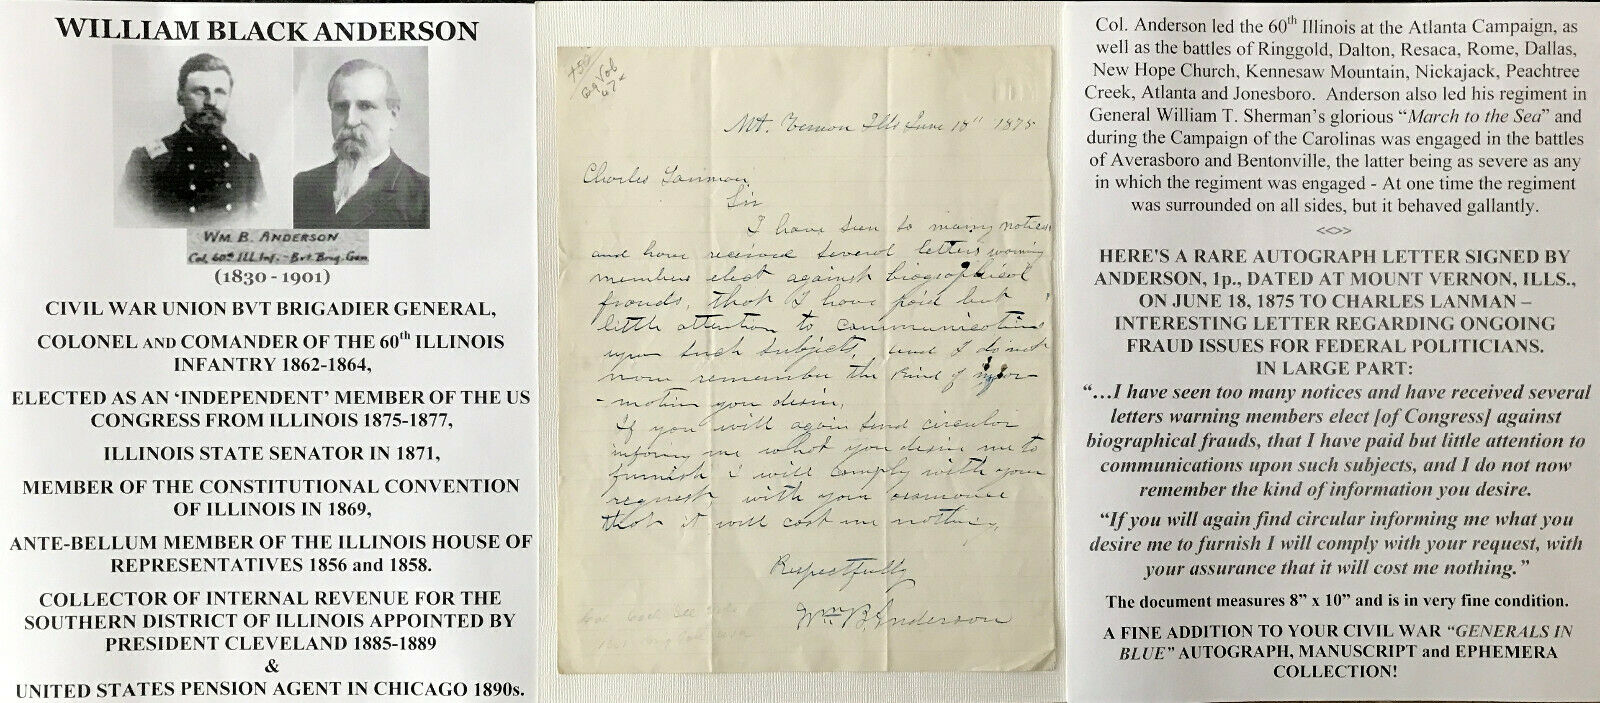 WILLIAM BLACK ANDERSON
WM. B. ANDERSON
Col. 60th Ill Inf. - Bvt. Brig. Gen
(1830 - 1901)
CIVIL WAR UNION BVT BRIGADIER GENERAL,
COLONEL AND COMANDER OF THE 60th ILLINOIS
INFANTRY 1862-1864,
ELECTED AS AN ‘INDEPENDENT’ MEMBER OF THE US
CONGRESS FROM ILLINOIS 1875-1877,
ILLINOIS STATE SENATOR IN 1871,
MEMBER OF THE CONSTITUTIONAL CONVENTION
OF ILLINOIS IN 1869,
ANTE-BELLUM MEMBER OF THE ILLINOIS HOUSE OF
REPRESENTATIVES 1856 and 1858.
COLLECTOR OF INTERNAL REVENUE FOR THE
SOUTHERN DISTRICT OF ILLINOIS APPOINTED BY
PRESIDENT CLEVELAND 1885-1889
&
UNITED STATES PENSION AGENT IN CHICAGO 1890s.
Mt. Vernon Ills June 18" 1875
Charles Lanman
Sir
I have seen so many notices
and have received several letters warning
members elect against biographical
frauds, that I have paid but
little attention to communications
upon such subjects, and I do not
now remember the kind of infor
-mation you desire.
If you will again send circular
informing me what you desire me to
furnish I will comply with your
request, with your assurance
that it will cost me nothing.
Respectfully
Wm B. Anderson
Col. Anderson led the 60th Illinois at the Atlanta Campaign, as
well as the battles of Ringgold, Dalton, Resaca, Rome, Dallas,
New Hope Church, Kennesaw Mountain, Nickajack, Peachtree
Creek, Atlanta and Jonesboro. Anderson also led his regiment in
General William T. Sherman’s glorious “March to the Sea” and
during the Campaign of the Carolinas was engaged in the battles
of Averasboro and Bentonville, the latter being as severe as any
in which the regiment was engaged - At one time the regiment
was surrounded on all sides, but it behaved gallantly.
<<>>
HERE'S A RARE AUTOGRAPH LETTER SIGNED BY
ANDERSON, 1p., DATED AT MOUNT VERNON, ILLS.,
ON JUNE 18, 1875 TO CHARLES LANMAN –
INTERESTING LETTER REGARDING ONGOING
FRAUD ISSUES FOR FEDERAL POLITICIANS.
IN LARGE PART:
“…I have seen too many notices and have received several
letters warning members elect [of Congress] against
biographical frauds, that I have paid but little attention to
communications upon such subjects, and I do not now
remember the kind of information you desire.
“If you will again find circular informing me what you
desire me to furnish I will comply with your request, with
your assurance that it will cost me nothing.”
The document measures 8” x 10” and is in very fine condition.
A FINE ADDITION TO YOUR CIVIL WAR “GENERALS IN
BLUE” AUTOGRAPH, MANUSCRIPT and EPHEMERA
COLLECTION!